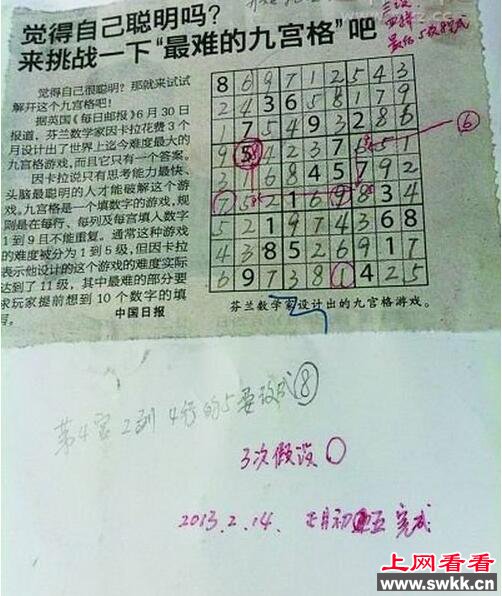 觉得自己聪明吗?
来挑战一下“最难的九宫格”吧
觉得自己很聪明?那就来试试
解开这个九宫格吧!
据英国《每日邮报》6月30日
报道,芬兰数学家因卡拉花费3个
月设计出了世界上迄今难度最大的
九宫格游戏,而且它只有一个答案。
因卡拉说只有思考能力最快、
头脑最聪明的人才能破解这个游
戏。九宫格是一个填数字的游戏,规
则是在每行、每列及每宫填入数字
1到9且不能重复。通常这种游戏
的难度被分为1到5级,但因卡拉
表示他设计的这个游戏的难度实际
达到了11级,其中最难的部分要
求玩家提前想到10个数字的填
写。
中国日报
8 6 9 7 1 2 5 4 3
2 4 3 6 5 8 1 7 9
1 7 5 4 9 3 2 8 6
9 5 4 2 3 7 5 1
3 1 6 8 4 5 7 9 2
7 5 2 1 6 9 8 3 4
5 2 1 9 7 4 3 6 8
4 3 8 5 2 6 9 1 7
6 9 7 3 8 1 4 2 5
⑥
芬兰数学家设计出的九宫格游戏。
第4宫2列4行的5要改成⑧
3次假设
2013.2.14. 正月初五完成
上网看看
www.swkk.cn